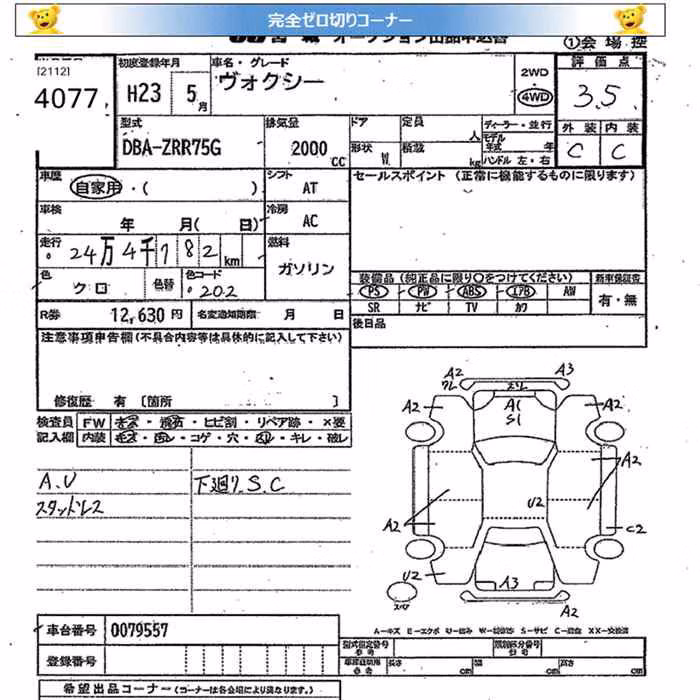 完全ゼロ切りコーナー
オークション出品申込書
①会場控
[2112]
4077
初度登録年月
H23 5月
車名・グレード
ヴォクシー
2WD
・
4WD
評価点
3.5
外装 内装
C C
型式
DBA-ZRR75G
排気量
2000 CC
ドア
形状 W
定員 人
積載 kg
ディーラー・並行
モデル年式 年
ハンドル 左・右
車歴
自家用・( )
シフト
AT
セールスポイント (正常に機能するものに限ります)
車検
年 月( 日)
冷房
AC
走行
24万4千782km
燃料
ガソリン
色
クロ
色替
色コード
202
装備品 (純正品に限り○をつけてください)
新車保証書
PS PW ABS エアB AW
SR ナビ TV カワ
有・無
R券 12,630円
名変通知期限 月 日
後日品
注意事項申告欄 (不具合内容等は具体的に記入して下さい)
修復歴 有 [箇所 ]
検査員記入欄
FW キズ・線傷・ヒビ割・リペア跡・×要
内装 キズ・汚レ・コゲ・穴・スレ・キレ・破レ
A.U
スタッドレス
下廻りS.C
A2 A3
ワレ スリ
A2 A1 S1 A2
A2
U2
A2
C2
U2
A3
A2
スペア
A-キズ E-エクボ U-凹み W-補修跡 S-サビ C-腐食 XX-交換済
車台番号 0079557
登録番号
型式指定番号
類別区分番号
長さ cm 幅 cm 高さ cm
希望出品コーナー (コーナーは各会場により異なります。)